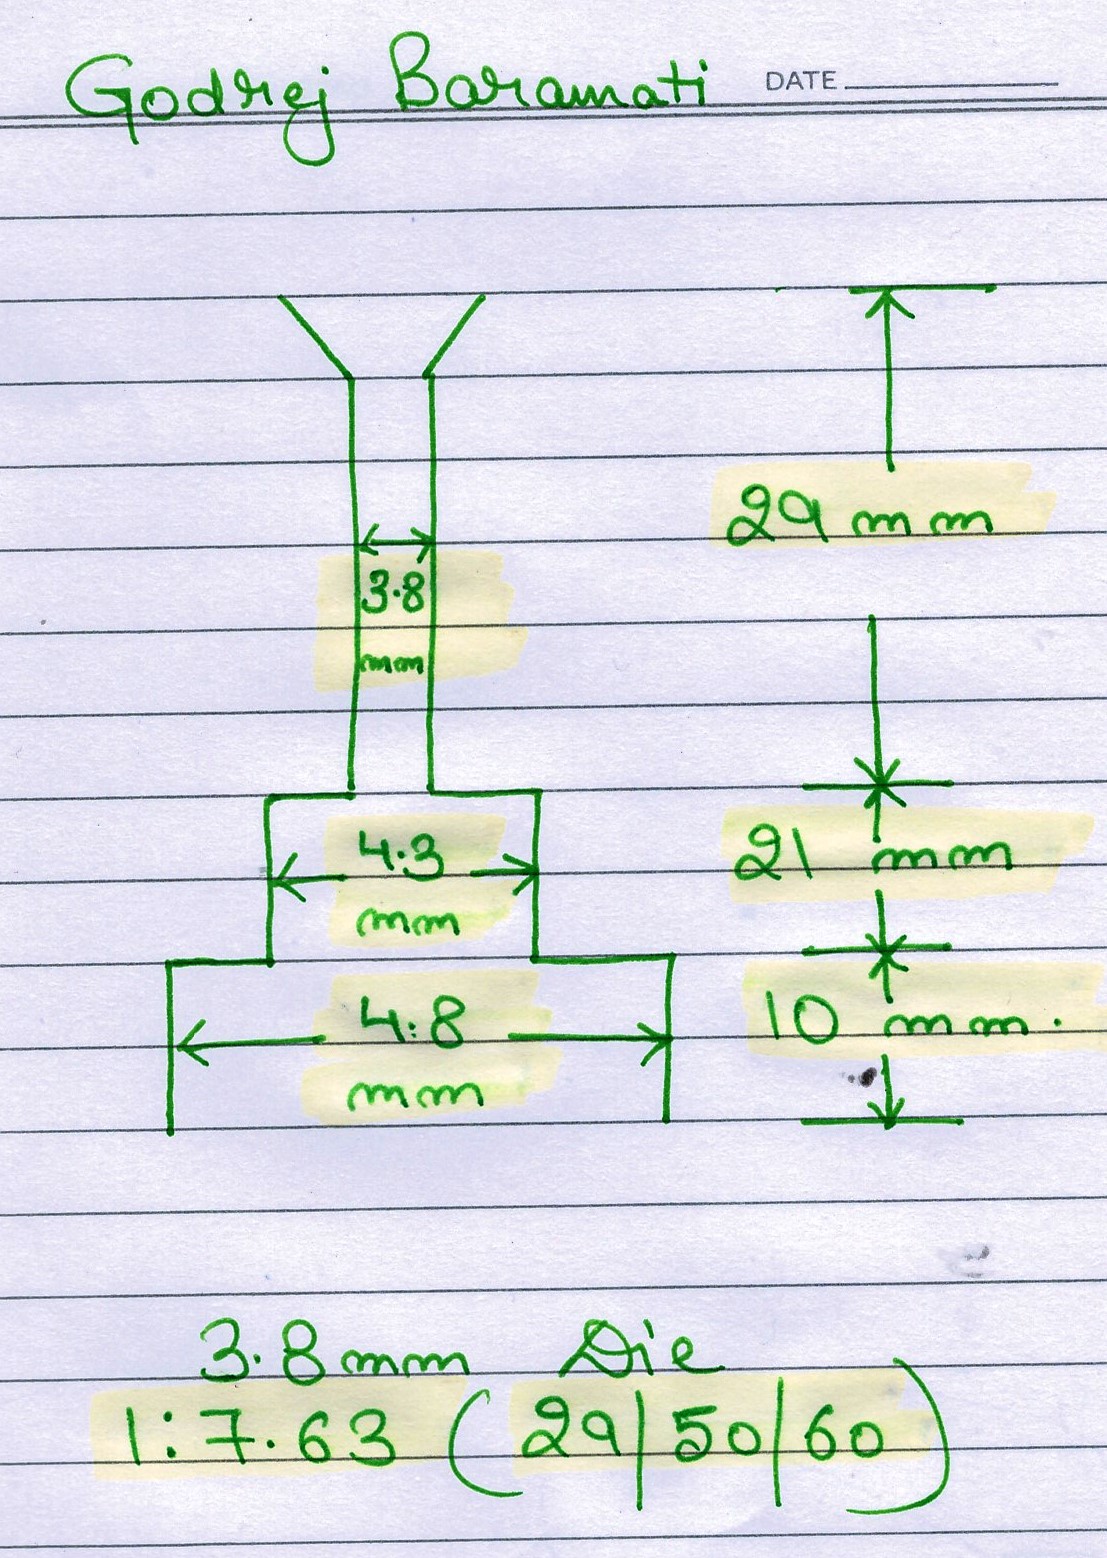 Godrej Baramati DATE
29 mm
3.8
mm
4.3
mm
21 mm
4.8
mm
10 mm.
3.8mm Die
1:7.63 (29|50|60)